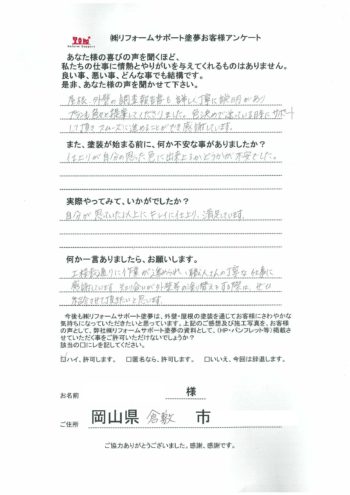 ㈱リフォームサポート塗夢お客様アンケート
あなた様の喜びの声を聞くほど、
私たちの仕事に情熱とやりがいを与えてくれるものはありません。
良い事、悪い事、どんな事でも結構です。
是非、あなた様の声を聞かせて下さい。
屋根・外壁の調査報告書も詳しく丁寧に説明があり
を提案してくださりました。色決めで迷っている時もサポート
して頂きスムーズに進めることができ感謝しています。
また、塗装が始まる前に、何か不安な事がありましたか?
仕上りが自分の思った色に出来上るかどうかが不安でした。
実際やってみて、いかがでしたか?
自分が思っていた以上にキレイに仕上り、満足しています。
何か一言ありましたら、お願いします。
工程表通りに作業が進められ、職人さんの丁寧な仕事に
感謝しています。知り合いが外壁等の塗り替えをする際は、ぜひ
紹介させて頂きたいと思います。
今後も㈱リフォームサポート塗夢は、外壁・屋根の塗装を通じてお客様にさわやかな
気持ちになっていただきたいと思っています。上記のご感想及び施工写真を、お客様
の声として、弊社㈱リフォームサポート塗夢の資料として、(HP・パンフレット等)掲載さ
せていただく事をご許可いただけないでしょうか?
該当の□にレを記してください。
☑ハイ、許可します。 □匿名なら、許可します。 □いいえ、今回は辞退します。
お名前 様
ご住所 岡山県 倉敷 市
ご協力ありがとうございました。感謝、感謝です。